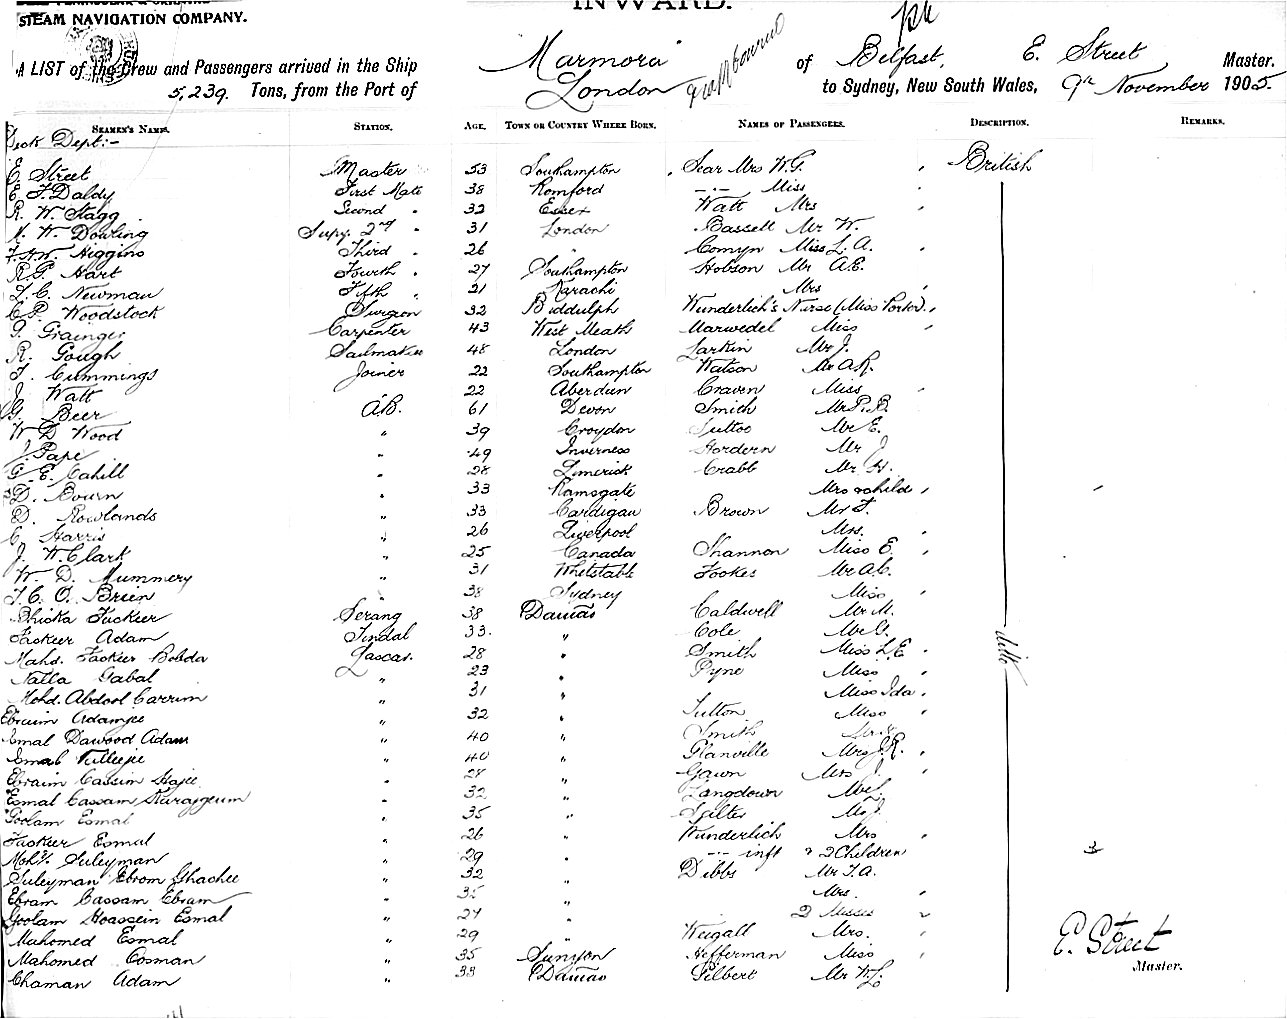 INWARD.
STEAM NAVIGATION COMPANY.
A LIST of the Crew and Passengers arrived in the Ship Marmora of Belfast, E. Street Master.
5,239. Tons, from the Port of London to Sydney, New South Wales, 9th November 1905.
SEAMEN'S NAMES. STATION. AGE. TOWN OR COUNTRY WHERE BORN. NAMES OF PASSENGERS. DESCRIPTION. REMARKS.
Deck Dept:-
E. Street Master 53 Southampton Sear Mrs W.G. British
E. F. Daldy First Mate 38 Romford -·- Miss
R. W. Stagg Second " 32 Essex Watt Mrs
W. Dowling Supy. 2nd " 31 London Bassett Mr W.
Higgins Third " 26 " Comyn Miss L. A.
R. G. Hart Fourth " 27 Southampton Hobson Mr A.E.
L. C. Newman Fifth " 21 Karachi Mrs
C. P. Woodstock Surgeon 32 Biddulph Wunderlich's Nurse (Miss Porter)
Grainger Carpenter 43 West Meath Marwedel Miss
R. Gough Sailmaker 48 London Larkin Mr J.
Cummings Joiner 22 Southampton Watson Mr A.R.
J. Watt 22 Aberdeen Craven Miss
G. Beer A.B. 61 Devon Smith Mr P. B.
W. D. Wood " 39 Croydon Suttor Mr E.
J. Pape " 49 Inverness Hordern Mr J
G. E. Cahill " 28 Limerick Crabb Mr H.
D. Bourn " 33 Ramsgate Mrs & child
D. Rowlands " 33 Cardigan Brown Mr F.
C. Harris " 26 Liverpool Mrs.
J. W. Clark " 25 Canada Shannon Miss E.
W. D. Mummery " 31 Whitstable Fookes Mr A.C.
O. Brien " 38 Sydney Miss
Bhicka Fuckeer Serang 38 Damao Caldwell Mr M.
Fackeer Adam Tindal 33. " Cole Mr G.
Mahd. Fackeer Bobda Lascar. 28 " Smith Miss L.E
Natla Gabal " 23 " Pyne Miss
Mohd. Abdool Carrim " 31 " Miss Ida ditto
Ebraim Adamjee " 32 " Sutton Miss
Esmal Dawood Adam " 40 " Smith
Esmal " 40 " Glanville Mrs J.R.
Ebraim Cassim Hajee " 27 " Gawn Mrs J.
Esmal Cassam " 32 " Langdown Mr L.
Goolam Esmal " 35 " Spilter Mr J.
Fackeer Esmal " 26 " Wunderlich Mrs
Suleyman " 29 " -·- inft & 2 Children 3
Suleyman Ebrom Ghachee " 32 " Dibbs Mr T.A.
Ebram Cassam Ebram " 35 " Mrs.
Goolam Hoassein Esmal " 27 " 2 Misses 2
Mahomed Esmal " 29 " Weigall Mrs. E. Street
Mahomed Oosman " 35 Sunyon Hefferman Miss Master.
Chaman Adam " 33 Damao Gilbert Mr W.L.